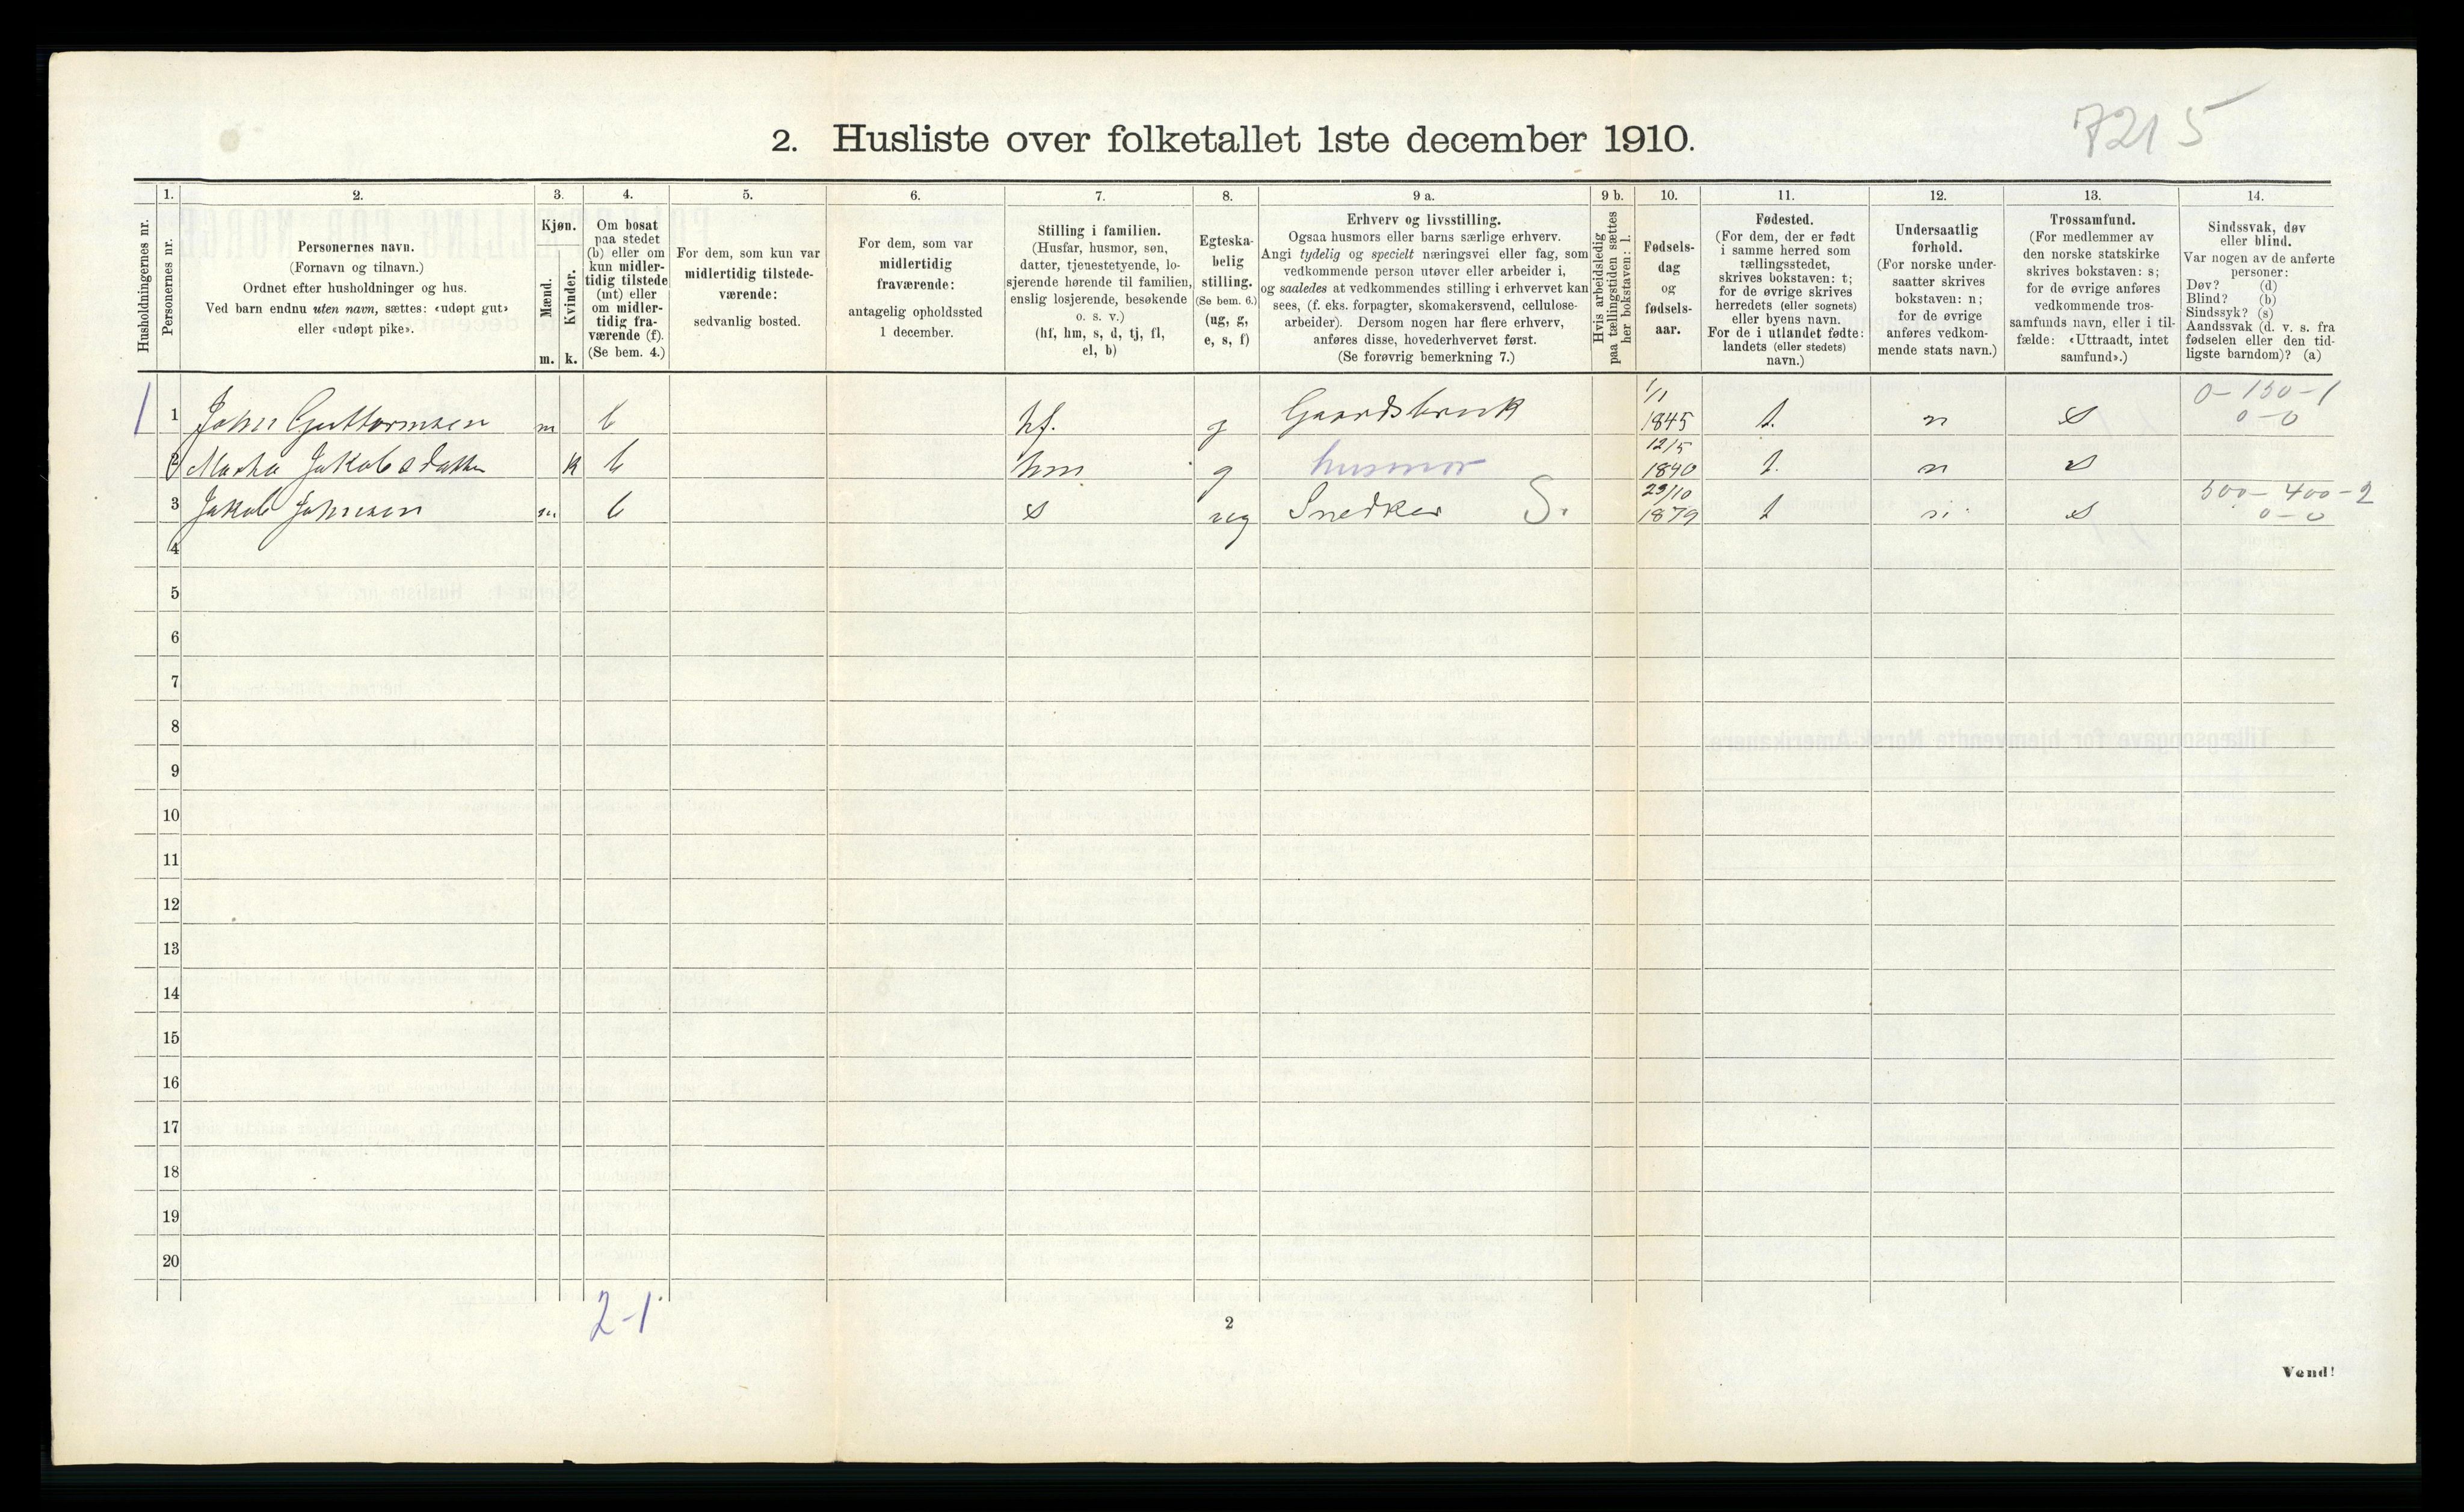 7215
2. Husliste over folketallet 1ste december 1910.
Husholdningernes nr.
1.
Personernes nr.
2.
Personernes navn.
(Fornavn og tilnavn.)
Ordnet efter husholdninger og hus.
Ved barn endnu uten navn, sættes: «udøpt gut»
eller «udøpt pike».
3.
Kjøn.
Mænd.
Kvinder.
m. k.
4.
Om bosat
paa stedet
(b) eller om
kun midler-
tidig tilstede
(mt) eller
om midler-
tidig fra-
værende (f).
(Se bem. 4.)
5.
For dem, som kun var
midlertidig tilstede-
værende:
sedvanlig bosted.
6.
For dem, som var
midlertidig
fraværende:
antagelig opholdssted
1 december.
7.
Stilling i familien.
(Husfar, husmor, søn,
datter, tjenestetyende, lo-
sjerende hørende til familien,
enslig losjerende, besøkende
o. s. v.)
(hf, hm, s, d, tj, fl,
el, b)
8.
Egteska-
belig
stilling.
(Se bem. 6.)
(ug, g,
e, s, f)
9 a.
Erhverv og livsstilling.
Ogsaa husmors eller barns særlige erhverv.
Angi tydelig og specielt næringsvei eller fag, som
vedkommende person utøver eller arbeider i,
og saaledes at vedkommendes stilling i erhvervet kan
sees, (f. eks. forpagter, skomakersvend, cellulose-
arbeider). Dersom nogen har flere erhverv,
anføres disse, hovederhvervet først.
(Se forøvrig bemerkning 7.)
9 b.
Hvis arbeidsledig
paa tællingstiden sættes
her bokstaven: l.
10.
Fødsels-
dag
og
fødsels-
aar.
11.
Fødested.
(For dem, der er født
i samme herred som
tællingsstedet,
skrives bokstaven: t;
for de øvrige skrives
herredets (eller sognets)
eller byens navn.
For de i utlandet fødte:
landets (eller stedets)
navn.)
12.
Undersaatlig
forhold.
(For norske under-
saatter skrives
bokstaven: n;
for de øvrige
anføres vedkom-
mende stats navn.)
13.
Trossamfund.
(For medlemmer av
den norske statskirke
skrives bokstaven: s;
for de øvrige anføres
vedkommende tros-
samfunds navn, eller i til-
fælde: «Uttraadt, intet
samfund».)
14.
Sindssvak, døv
eller blind.
Var nogen av de anførte
personer:
Døv? (d)
Blind? (b)
Sindssyk? (s)
Aandssvak (d. v. s. fra
fødselen eller den tid-
ligste barndom)? (a)
1 1 John Guttormsen m b hf. g Gaardsbruk 1/1 1845 t. n s 0-150-1 0-0
2 Martha Jakobsdatter k b hm g husmor 12/5 1840 t. n s
3 Jakob Johnsen m b s ug Snedker S. 29/10 1879 t n s 500-400-2 0-0
4
5
6
7
8
9
10
11
12
13
14
15
16
17
18
19
20
2-1
2
Vend!